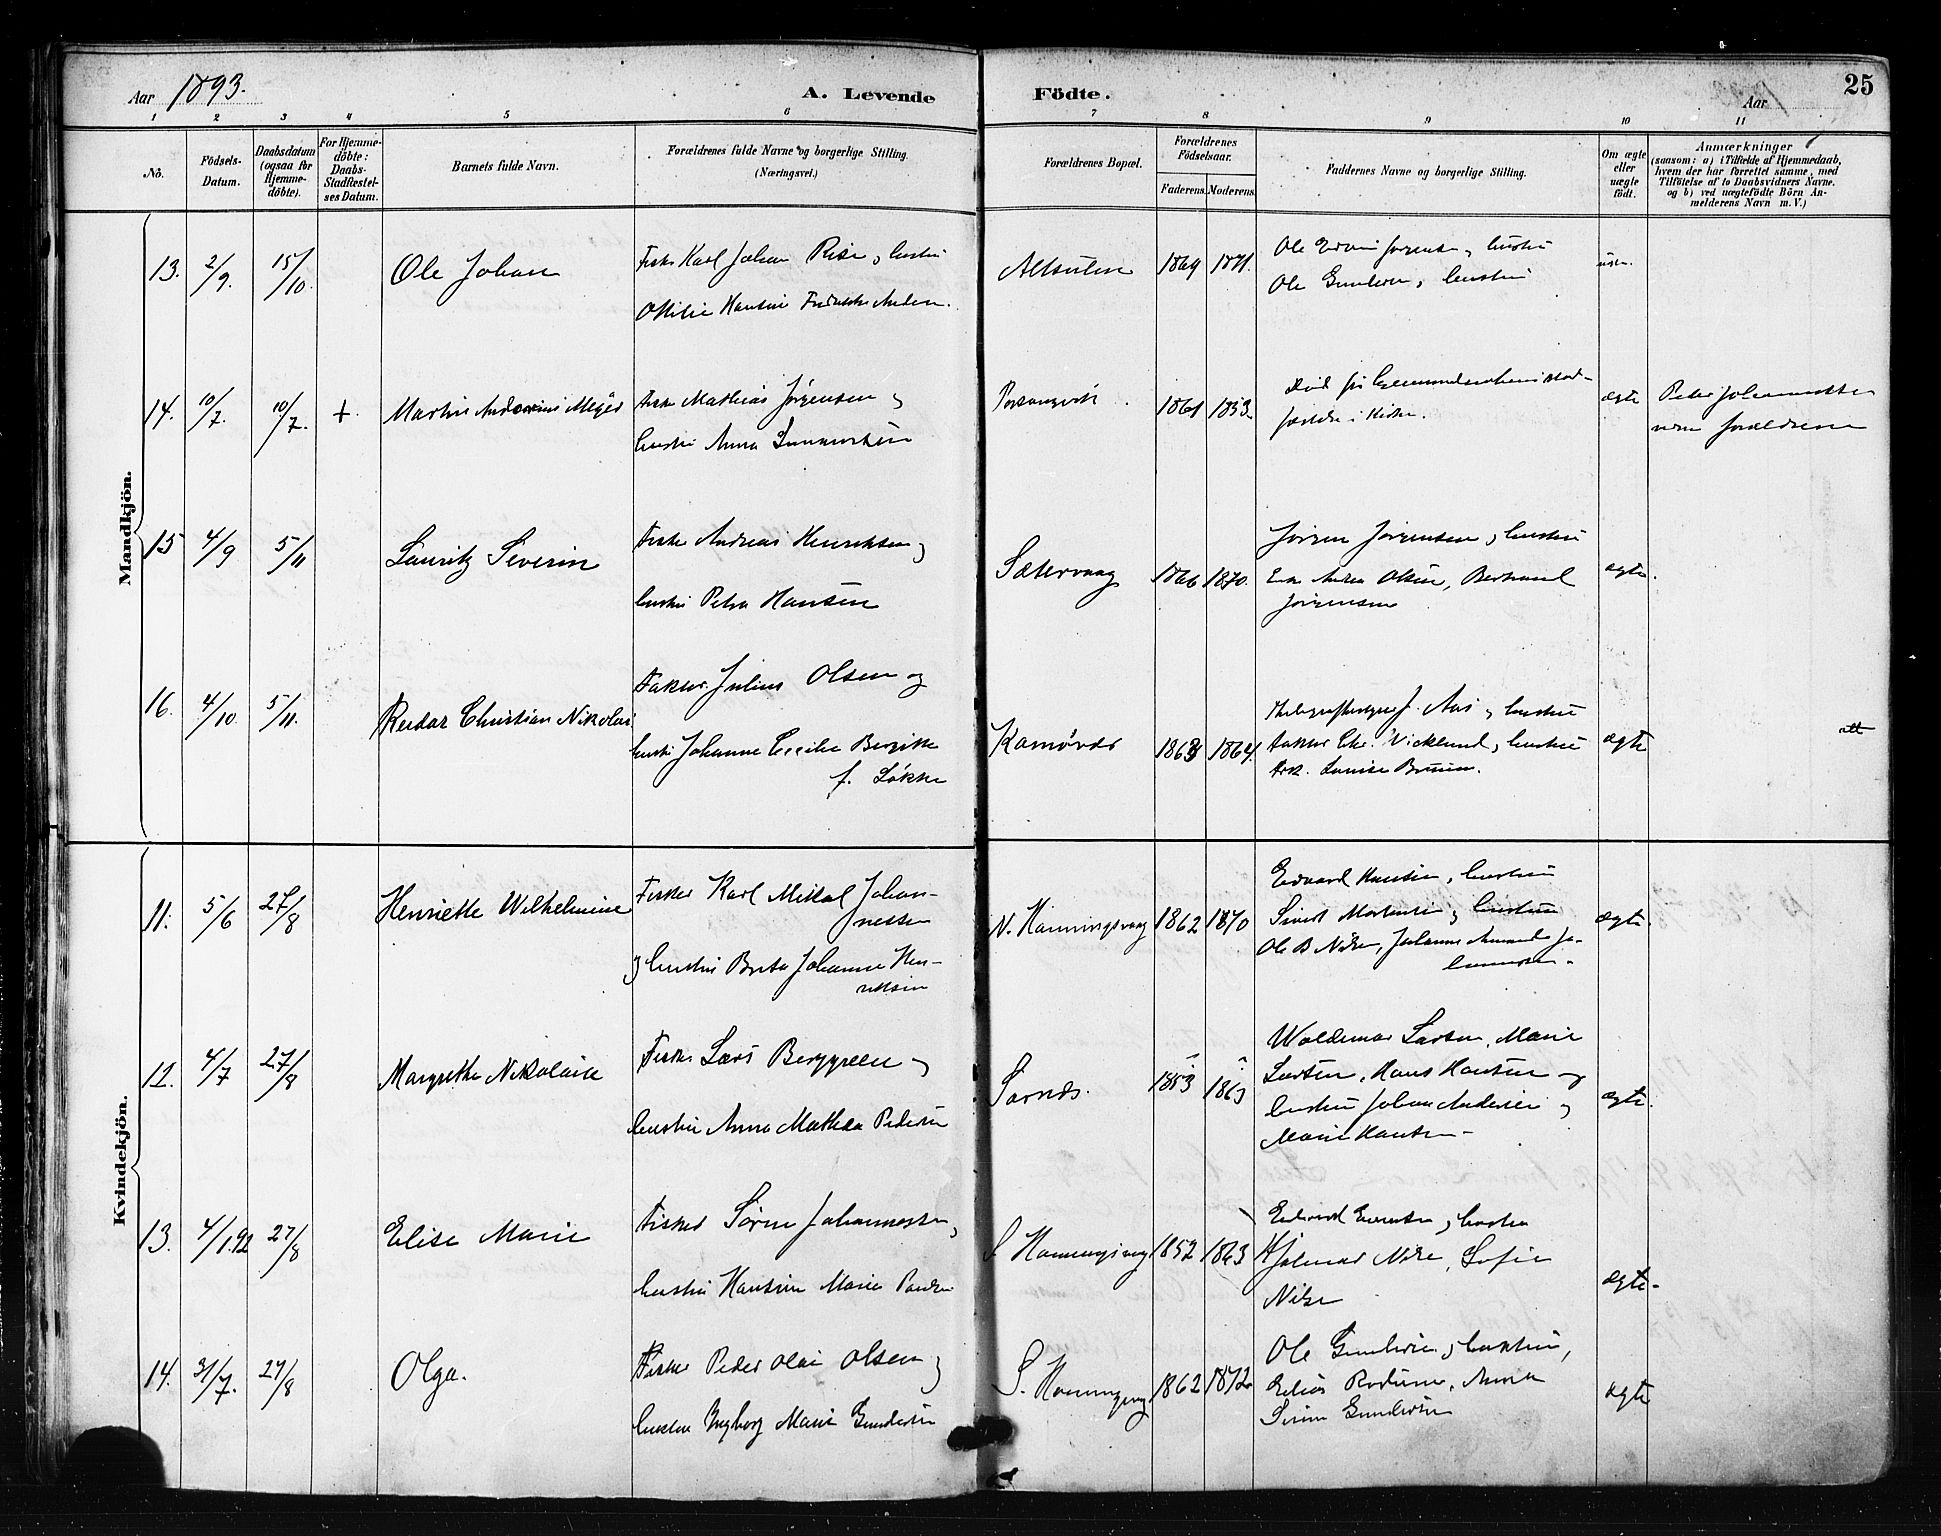 Aar 1893.
A. Levende Födte.
Aar
25
1 2 3 4 5 6 7 8 9 10 11
No.
Födsels-Datum.
Daabsdatum (ogsaa for Hjemme-döbte).
For Hjemme-döbte: Daabs-Stadfæstel-ses Datum.
Barnets fulde Navn.
Forældrenes fulde Navne og borgerlige Stilling.
(Næringsvei.)
Forældrenes Bopæl.
Forældrenes Födselsaar.
Faderens. Moderens.
Faddernes Navne og borgerlige Stilling.
Om ægte eller uægte födt.
Anmærkninger
(saasom: a) i Tilfælde af Hjemmedaab,
hvem der har forrettet samme, med
Tilföielse af to Daabsvidners Navne,
og b) ved uægtefödte Börn An-
melderens Navn m. V.)
Mandkjön.
13. 2/9. 15/10. Ole Johan
Fisker Karl Johan Risø og hustru
Ottilie Hansine
1871.
Ole Gundersen og hustru
14. 10/7. 10/7. + Martin Meyer
Fisker Mathias Jørgensen og
hustru Anna
Porsangvik 1861 1853
i Kirken.
ægte
Peder Johannessen
15 4/9 5/11 Lauritz Severin
Fisker Andreas Henriksen og
hustru Petra Hansen
Sætervaag 1866 1870.
Jørgen Jørgensen og hustru
Olsen,
Jørgensen
ægte.
16. 4/10. 5/11. Reidar Christian Nikolai
Faktor Julius Olsen og
hustru Johanne Cecilie Bergitte
f. Løkke
Kamøvær 1863 1864.
J. Aas og hustru
faktor Chr. Wicklund og hustru
Louise Bruun.
ægte
Kvindekjön.
11. 5/6 27/8 Henriette Wilhelmine
Fisker Karl Mikal Johan-
nessen
og hustru Berta Johanne Hen-
riksen
N. Honningsvaag 1862 1870
Edvard Hansen, hustru
Sivert Mortensen og hustru
Ole B Nilsen, Johanne Amanda Jo-
hannessen.
ægte.
12. 4/7 27/8 Margrethe Nikolaise
Fisker Lars Berggreen og
hustru Anna Mathea Pedersen
Sarnæs. 1853 1863
Waldemar Larsen, Marie
Larsen, Hans Hansen og
hustru Johan Andersen og
Marie Hansen
ægte.
13. 4/1.92 27/8 Elise Marie
Fisker Søren Johannessen,
hustru Hansine Marie
S. Honningsvaag 1852 1863
og hustru
Hjalmar Nilsen, Sofie
Nilsen
ægte.
14. 31/7. 27/8 Olga.
Fisker Peder Olai Olsen og
hustru Ingborg Marie Gundersen
S. Honningsvaag 1862 1872
Ole Gundersen og hustru,
Anna
Gundersen
ægte